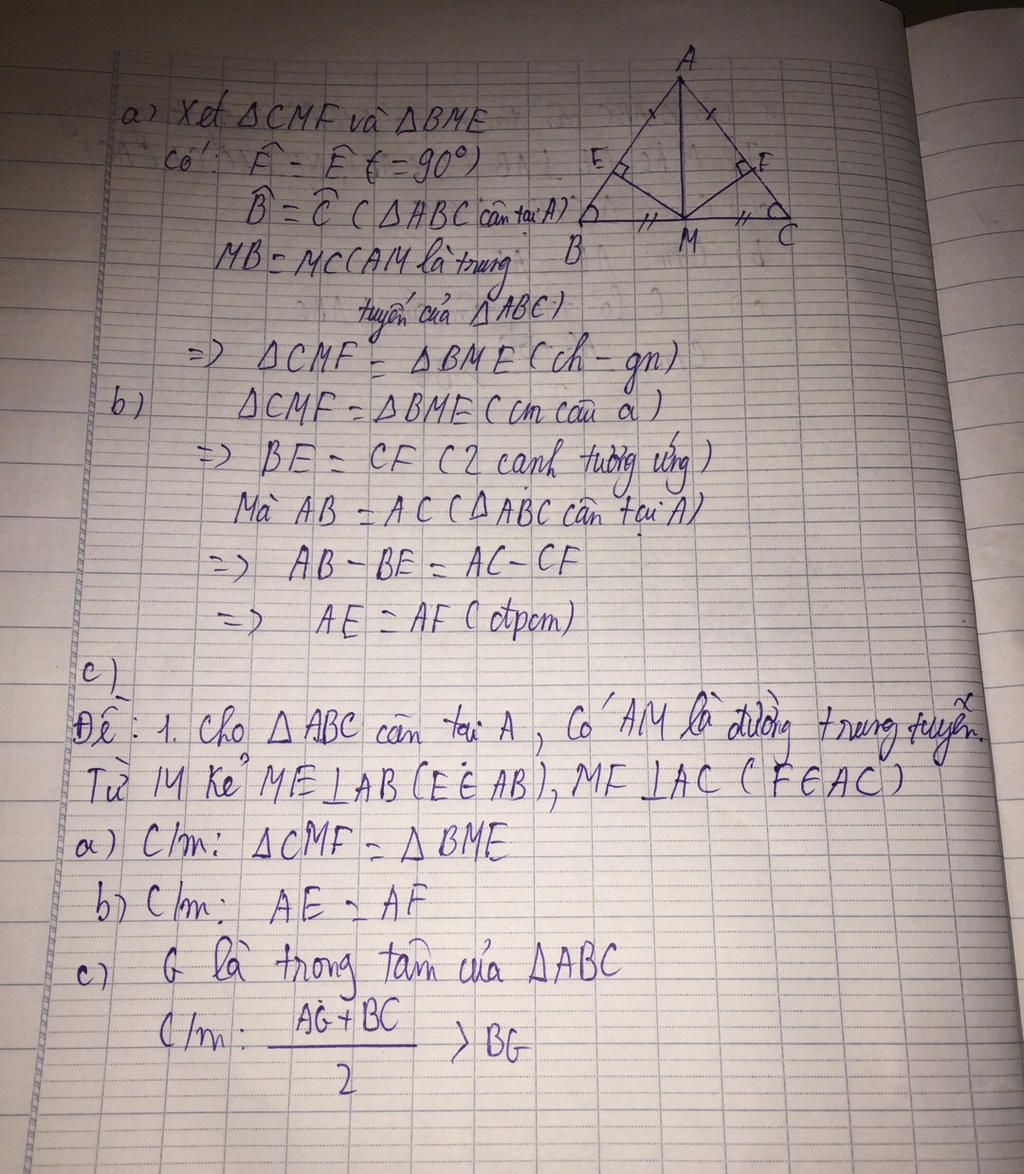 a) Xét ΔCMF và ΔBME
có: F̂ = Ê (= 90°)
B̂ = Ĉ (ΔABC cân tại A)
MB = MC (AM là trung
tuyến của ΔABC)
=> ΔCMF = ΔBME (ch - gn)
b) ΔCMF = ΔBME (cm câu a)
=> BE = CF (2 cạnh tương ứng)
Mà AB = AC (ΔABC cân tại A)
=> AB - BE = AC - CF
=> AE = AF (đpcm)
A
E
F
B
M
C
c)
Đề: 1. Cho ΔABC cân tại A, Có AM là đường trung tuyến.
Từ M kẻ ME ⊥ AB (E ∈ AB), MF ⊥ AC (F ∈ AC)
a) C/m: ΔCMF = ΔBME
b) C/m: AE = AF
c) G là trong tâm của ΔABC
C/m: (AG + BC)/2 > BG